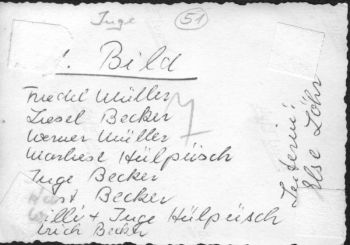 Inge
51
1. Bild
Friedel Müller
Liesel Becker
Werner Müller
Marliese Hülpüsch
Inge Becker
Horst Becker
Willi + Inge Hülpüsch
Erich Becker
Leiterin:
Else Löhr